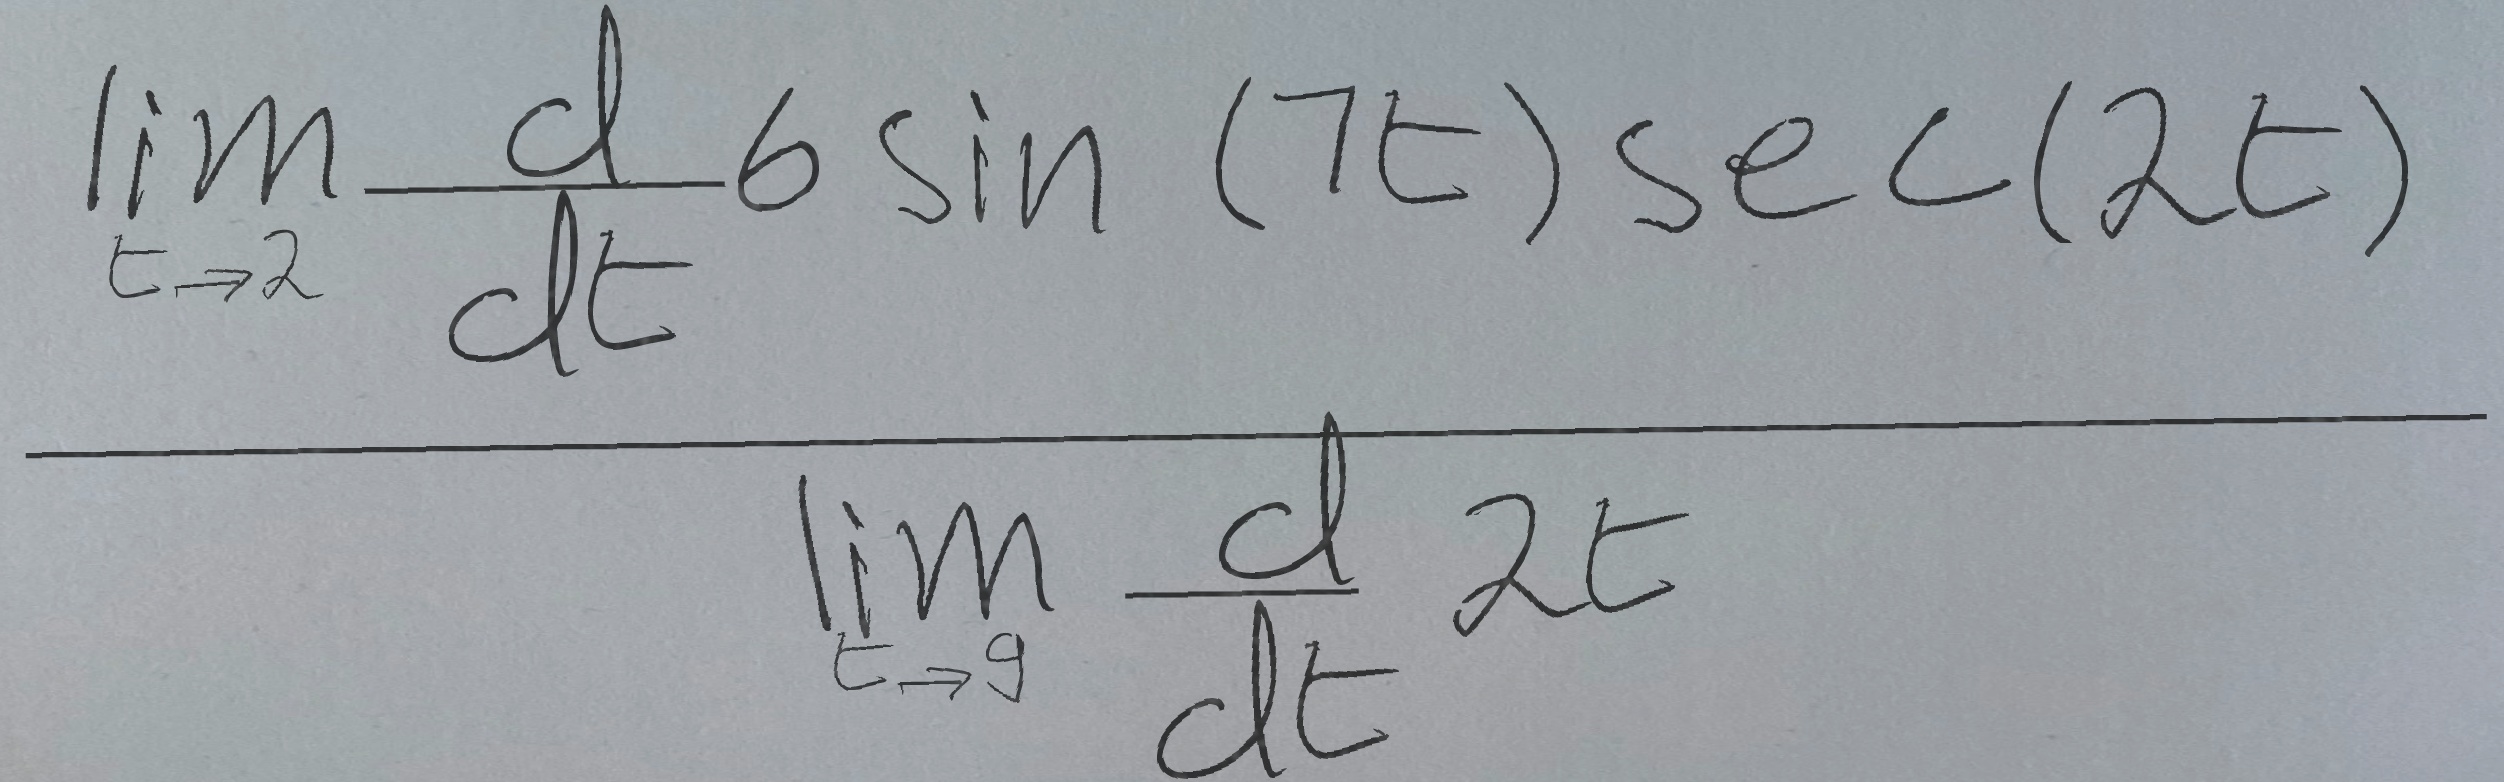 \frac{\lim_{t \to 2} \frac{d}{dt} 6 \sin(7t) \sec(2t)}{\lim_{t \to 9} \frac{d}{dt} 2t}